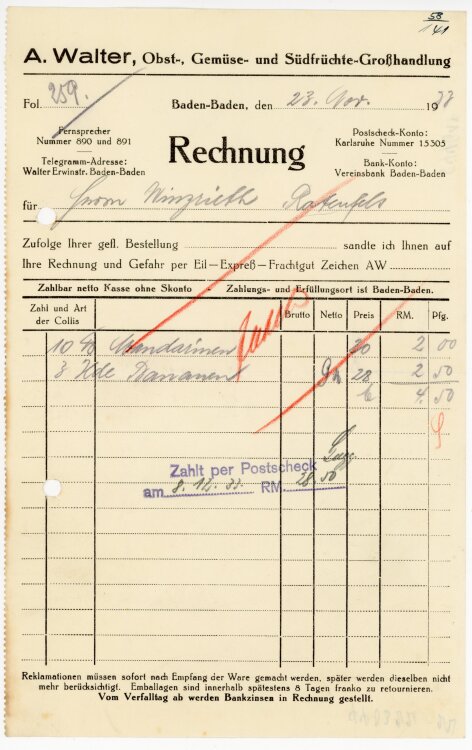 58
141
A. Walter, Obst-, Gemüse- und Südfrüchte-Großhandlung
Fol. 259. Baden-Baden, den 23. Nov. 1933
Fernsprecher
Nummer 890 und 891
Telegramm-Adresse:
Walter Erwinstr. Baden-Baden
Rechnung
Postscheck-Konto:
Karlsruhe Nummer 15305
Bank-Konto:
Vereinsbank Baden-Baden
für Herrn Rotenfels
Zufolge Ihrer gefl. Bestellung sandte ich Ihnen auf
Ihre Rechnung und Gefahr per Eil—Expreß—Frachtgut Zeichen AW
Zahlbar netto Kasse ohne Skonto - Zahlungs- und Erfüllungsort ist Baden-Baden.
Zahl und Art der Collis Brutto Netto Preis RM. Pfg.
10 Mandarinen 20 2 00
3 Bananen 28 2 50
4. 50
Zahlt per Postscheck
am 8. 12. 33. RM. 28.50
Reklamationen müssen sofort nach Empfang der Ware gemacht werden, später werden dieselben nicht
mehr berücksichtigt. Emballagen sind innerhalb spätestens 8 Tagen franko zu retournieren.
Vom Verfalltag ab werden Bankzinsen in Rechnung gestellt.